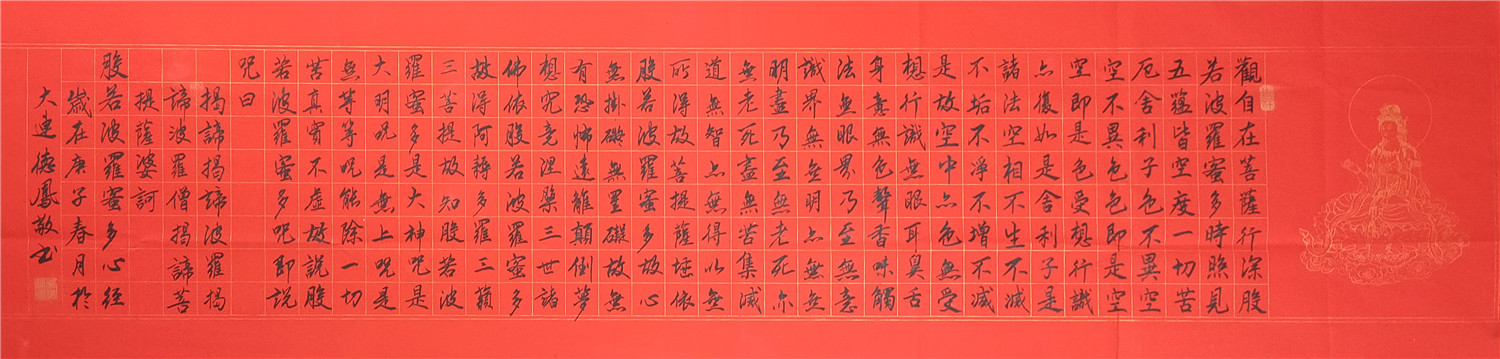 觀自在菩薩行深般
若波羅蜜多時照見
五蘊皆空度一切苦
厄舍利子色不異空
空不異色色即是空
空即是色受想行識
亦復如是舍利子是
諸法空相不生不滅
不垢不淨不增不減
是故空中亦色無受
想行識無眼耳鼻舌
身意無色聲香味觸
法無眼界乃至無意
識界無無明亦無無
明盡乃至無老死亦
無老死盡無苦集滅
道無智亦無得以無
所得故菩提薩埵依
般若波羅蜜多故心
無掛礙無罣礙故無
有恐怖遠離顛倒夢
想究竟涅槃三世諸
佛依般若波羅蜜多
故得阿耨多羅三藐
三菩提故知般若波
羅蜜多是大神咒是
大明咒是無上咒是
無等等咒能除一切
苦真實不虛故說般
若波羅蜜多咒即說
咒曰
揭諦揭諦波羅揭
諦波羅僧揭諦菩
提薩婆訶
般若波羅蜜多心經
歲在庚子春月於
大連德鳳敬书